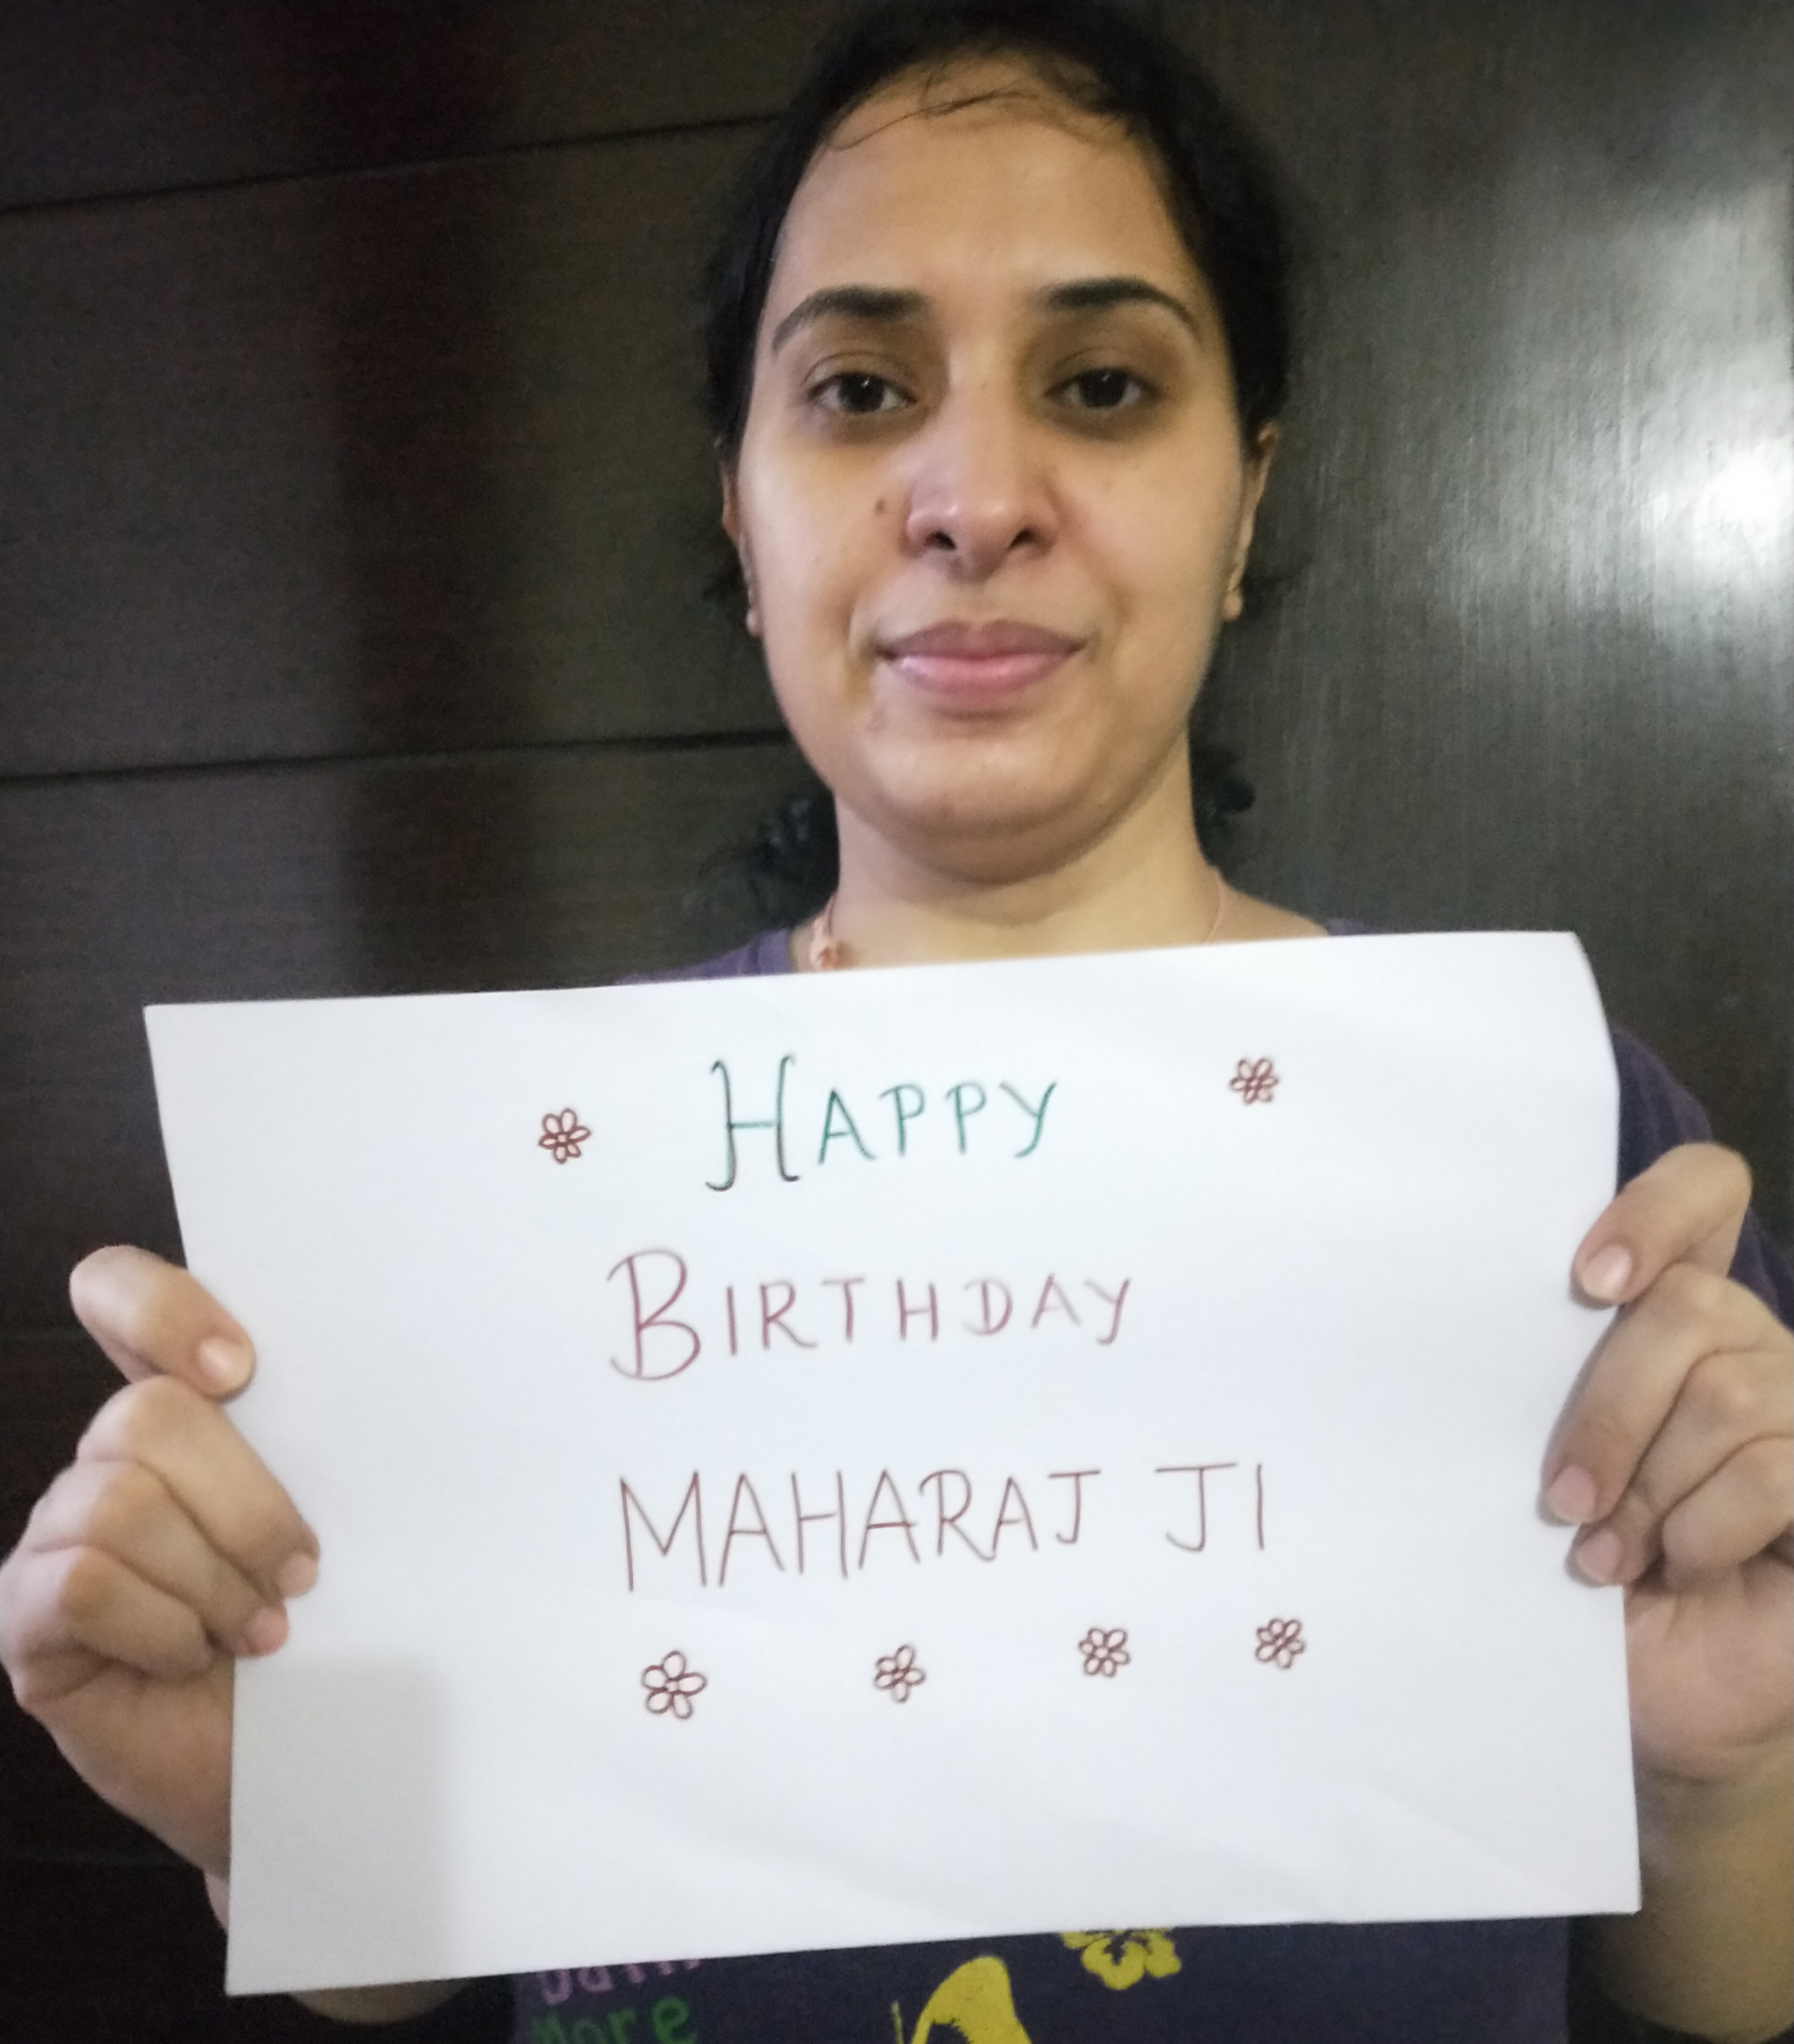 HAPPY
BIRTHDAY
MAHARAJ JI
More